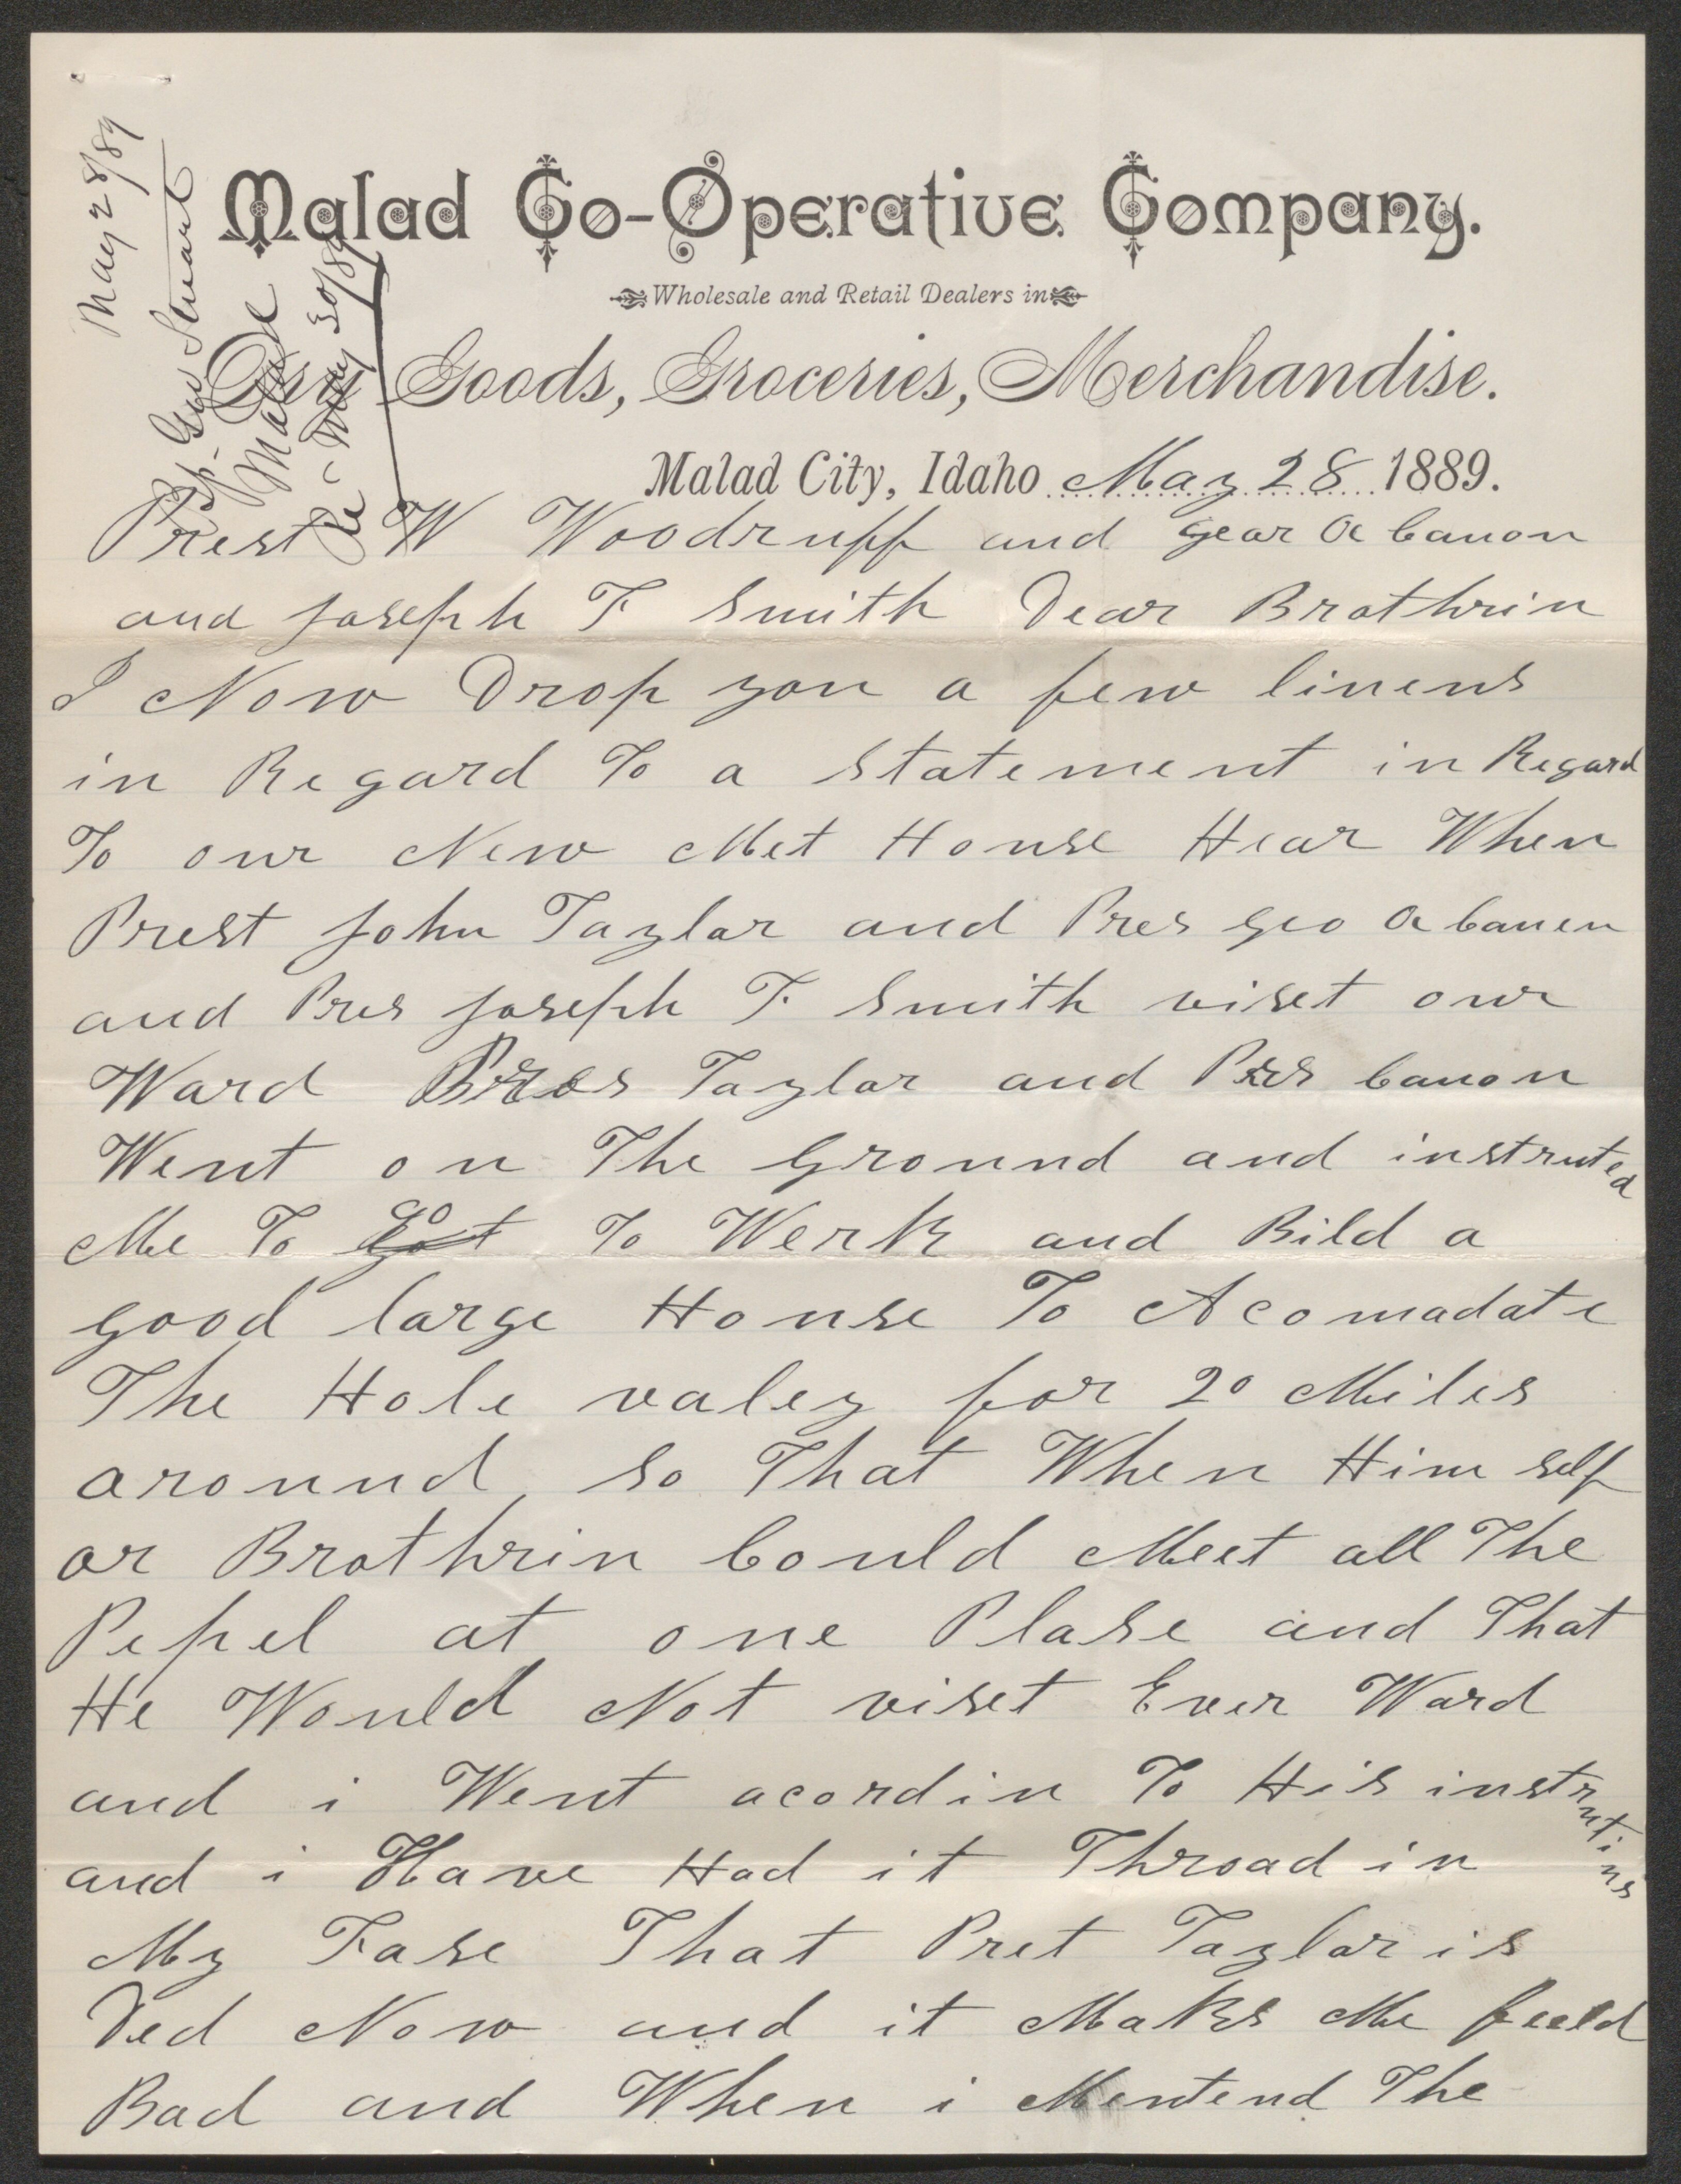 May 28/89
Bp. Geo Stuart
Malad
Re- May 30/89
Malad Co-Operative Company.
Wholesale and Retail Dealers in
Dry Goods, Groceries, Merchandise.
Malad City, Idaho May 28 1889.
Prest W Woodruff and gear Q Canon
and Joseph F Smith Dear Brothrin
I Now Drop you a few linens
in Regard To a Statement in Regard
To our New Met House Hear When
Prest John Taylar and Pres geo Q Canen
and Pres Joseph F. Smith viset our
Ward Pres Taylar and Pres Canon
Went on The Ground and instruted
Me To go To Werk and Bild a
good large House To Acomadate
The Hole valey for 20 Miles
around so That When Him self
or Brothrin Could Meet all The
Pepel at one Plase and That
He Would Not viset Ever Ward
and i Went acordin To His instrutins
and i Have Had it Throad in
My Fase That Pret Taylar is
Ded Now and it Maks Me feeld
Bad and When i Mentend The